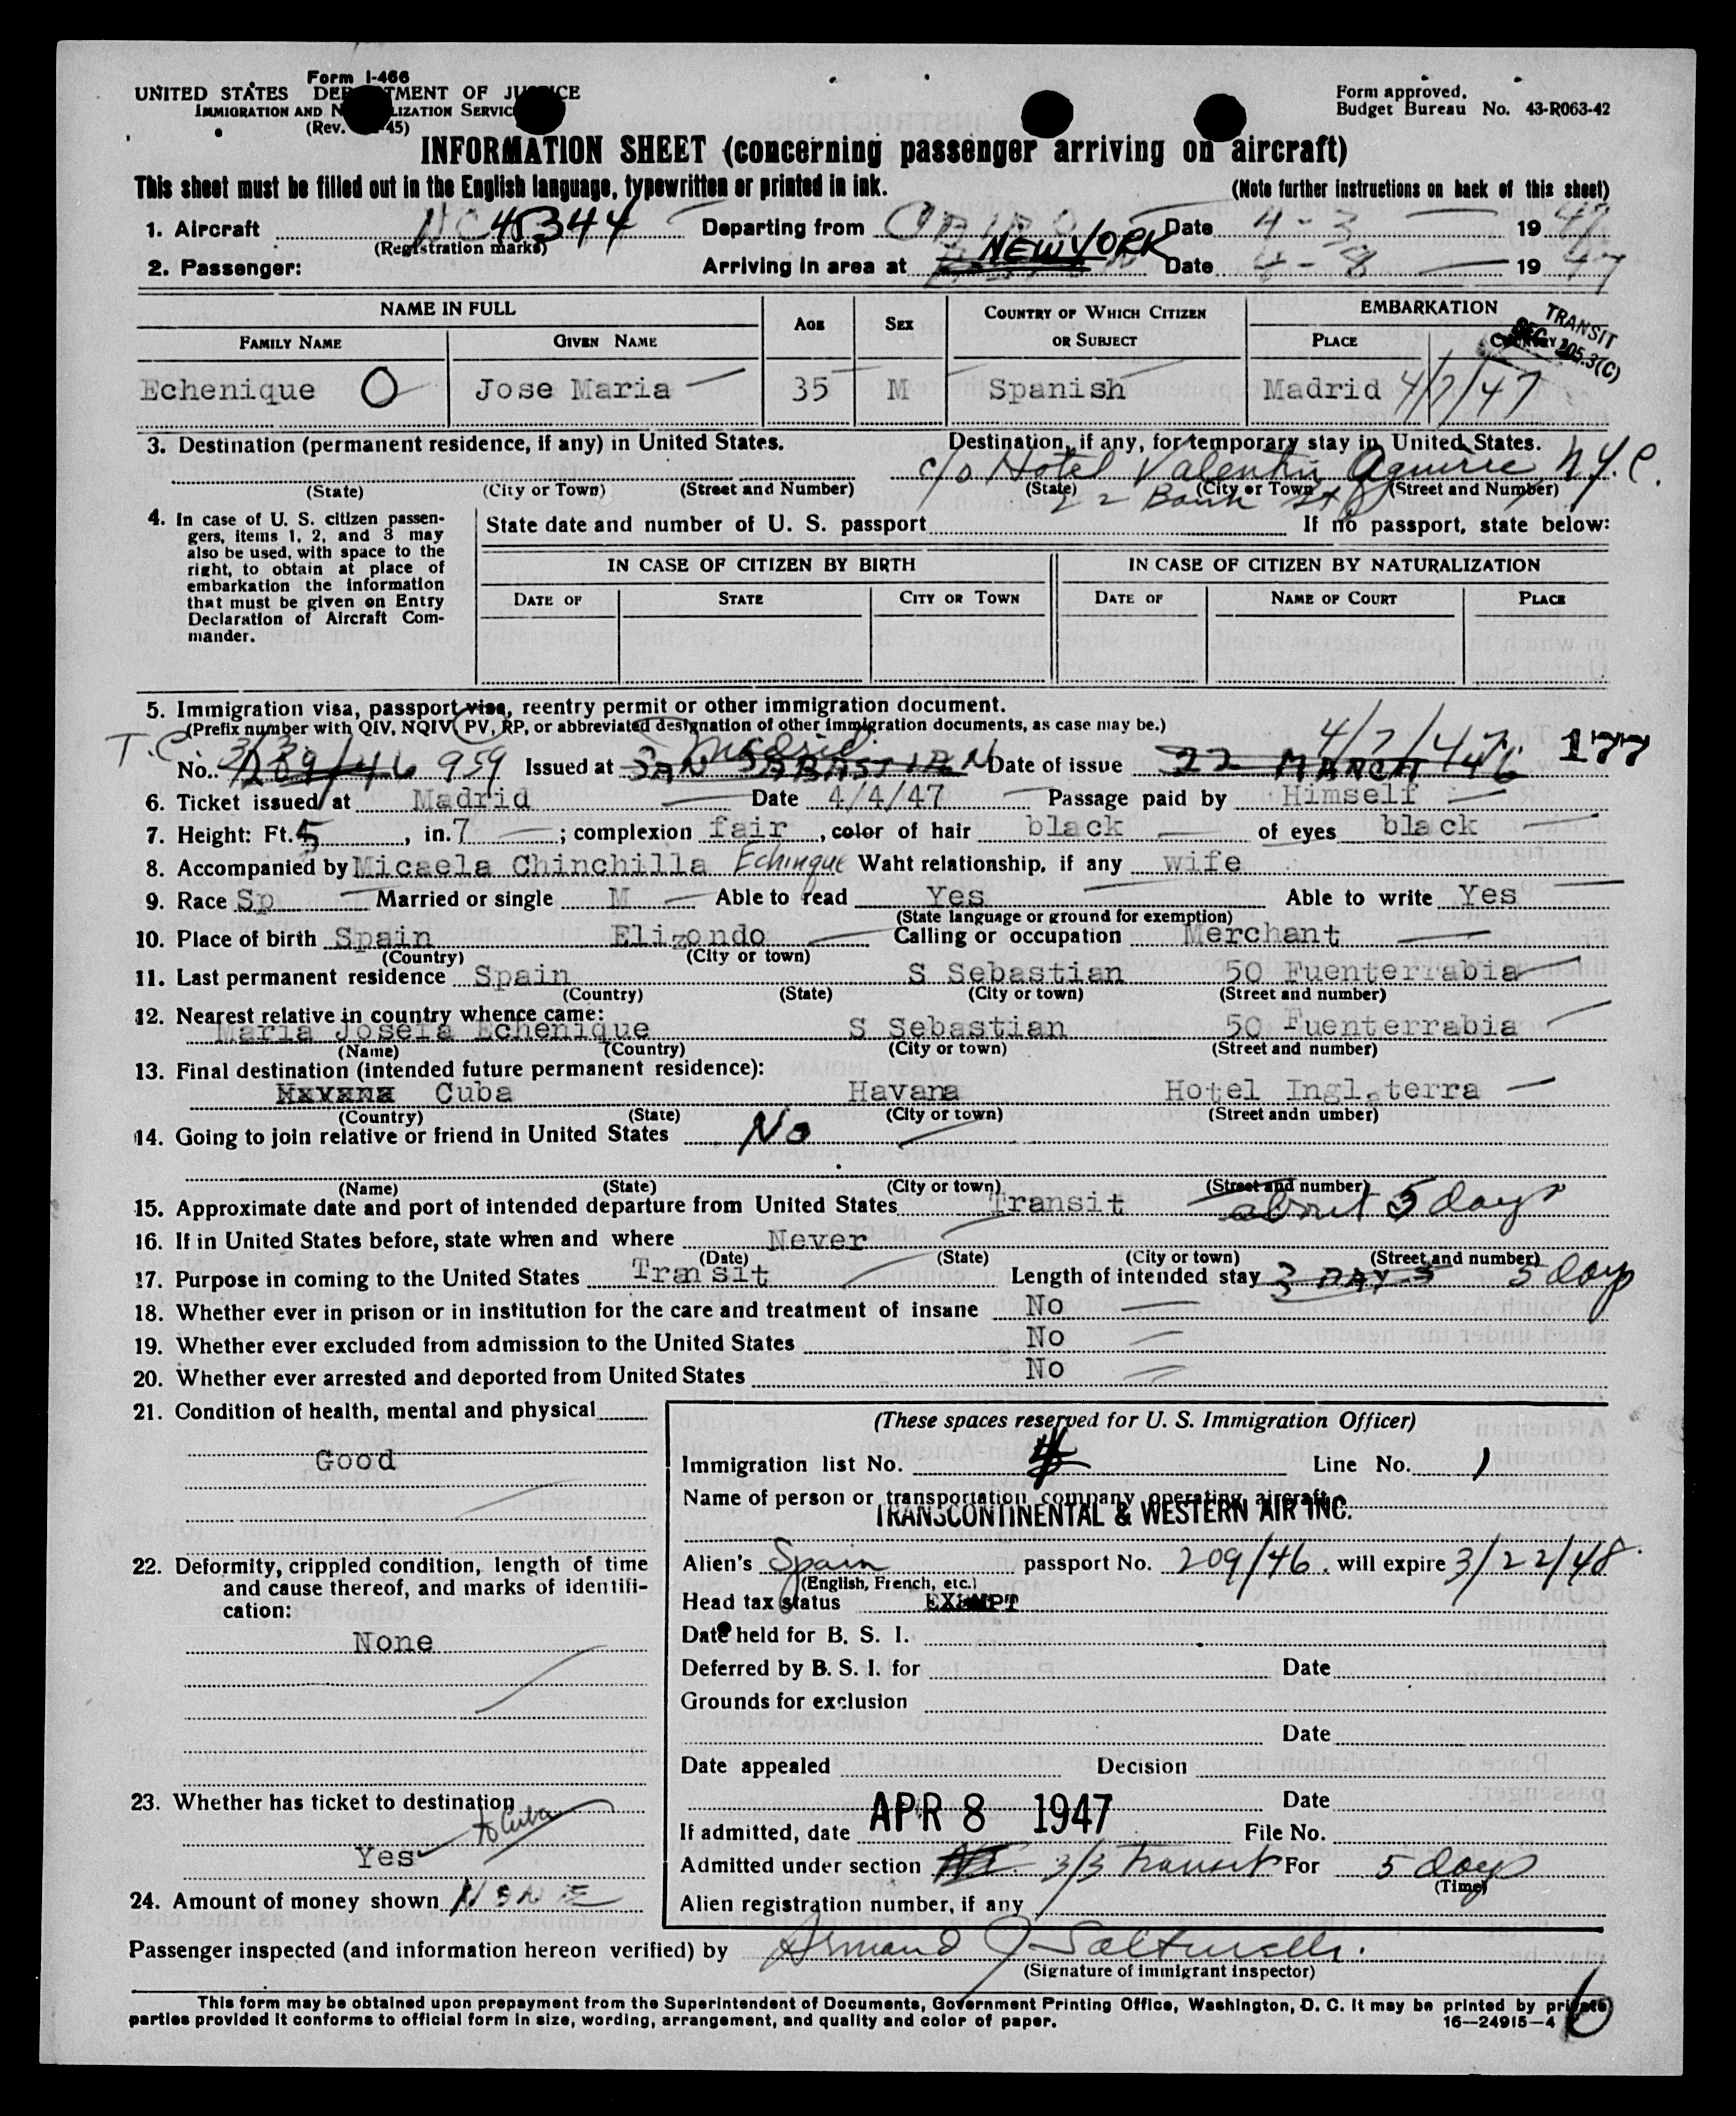 Form I-466
UNITED STATES DEPARTMENT OF JUSTICE
IMMIGRATION AND NATURALIZATION SERVICE
(Rev. 45)
Form approved.
Budget Bureau No. 43-R063-42
INFORMATION SHEET (concerning passenger arriving on aircraft)
This sheet must be filled out in the English language, typewritten or printed in ink.
(Note further instructions on back of this sheet)
1. Aircraft NC 45344 Departing from CAIRO Date 4-3 1947
(Registration marks)
2. Passenger: Arriving in area at NEW YORK Date 4-8 1947
NAME IN FULL AGE SEX COUNTRY OF WHICH CITIZEN OR SUBJECT EMBARKATION
FAMILY NAME GIVEN NAME PLACE COUNTRY
TRANSIT
SEC. 105.3(C)
Echenique O Jose Maria 35 M Spanish Madrid 4/7/47
3. Destination (permanent residence, if any) in United States. Destination, if any, for temporary stay in United States.
c/o Hotel Valentin Aguirre N.Y.C.
(State) (City or Town) (Street and Number) (State) (City or Town) (Street and Number)
22 Bank St
4. In case of U. S. citizen passen-
gers, items 1, 2, and 3 may
also be used, with space to the
right, to obtain at place of
embarkation the information
that must be given on Entry
Declaration of Aircraft Com-
mander.
State date and number of U. S. passport If no passport, state below:
IN CASE OF CITIZEN BY BIRTH IN CASE OF CITIZEN BY NATURALIZATION
DATE OF STATE CITY OR TOWN DATE OF NAME OF COURT PLACE
5. Immigration visa, passport visa, reentry permit or other immigration document.
(Prefix number with QIV, NQIV, PV, RP, or abbreviated designation of other immigration documents, as case may be.)
T.C. 3/3 Madrid 4/7/47 177
No. 209/46 959 Issued at SAN SABASTIAN Date of issue 22 MARCH 46
6. Ticket issued at Madrid Date 4/4/47 Passage paid by Himself
7. Height: Ft. 5, in. 7; complexion fair, color of hair black of eyes black
8. Accompanied by Micaela Chinchilla Echinque Waht relationship, if any wife
9. Race Sp Married or single M Able to read Yes Able to write Yes
(State language or ground for exemption)
10. Place of birth Spain Elizondo Calling or occupation Merchant
(Country) (City or town)
11. Last permanent residence Spain S Sebastian 50 Fuenterrabia
(Country) (State) (City or town) (Street and number)
12. Nearest relative in country whence came:
Maria Josefa Echenique S Sebastian 50 Fuenterrabia
(Name) (Country) (City or town) (Street and number)
13. Final destination (intended future permanent residence):
Havana Cuba Havana Hotel Ingl.terra
(Country) (State) (City or town) (Street andn umber)
14. Going to join relative or friend in United States No
(Name) (State) (City or town) (Street and number)
15. Approximate date and port of intended departure from United States Transit about 5 days
16. If in United States before, state when and where Never
(Date) (State) (City or town) (Street and number)
17. Purpose in coming to the United States Transit Length of intended stay 3 DAYS 5 days
18. Whether ever in prison or in institution for the care and treatment of insane No
19. Whether ever excluded from admission to the United States No
20. Whether ever arrested and deported from United States No
21. Condition of health, mental and physical
Good
22. Deformity, crippled condition, length of time
and cause thereof, and marks of identifi-
cation:
None
23. Whether has ticket to destination
to Cuba
Yes
24. Amount of money shown NONE
(These spaces reserved for U. S. Immigration Officer)
Immigration list No. 4 Line No. 1
Name of person or transportation company operating aircraft
TRANSCONTINENTAL & WESTERN AIR INC.
Alien's Spain passport No. 209/46. will expire 3/22/48.
(English, French, etc.)
Head tax status EXEMPT
Date held for B. S. I.
Deferred by B. S. I. for Date
Grounds for exclusion
Date
Date appealed Decision
Date
If admitted, date APR 8 1947 File No.
Admitted under section 3/3 Transit For 5 days
(Time)
Alien registration number, if any
Passenger inspected (and information hereon verified) by Armand J
(Signature of immigrant inspector)
This form may be obtained upon prepayment from the Superintendent of Documents, Government Printing Office, Washington, D. C. It may be printed by private
parties provided it conforms to official form in size, wording, arrangement, and quality and color of paper.
16—24915-4